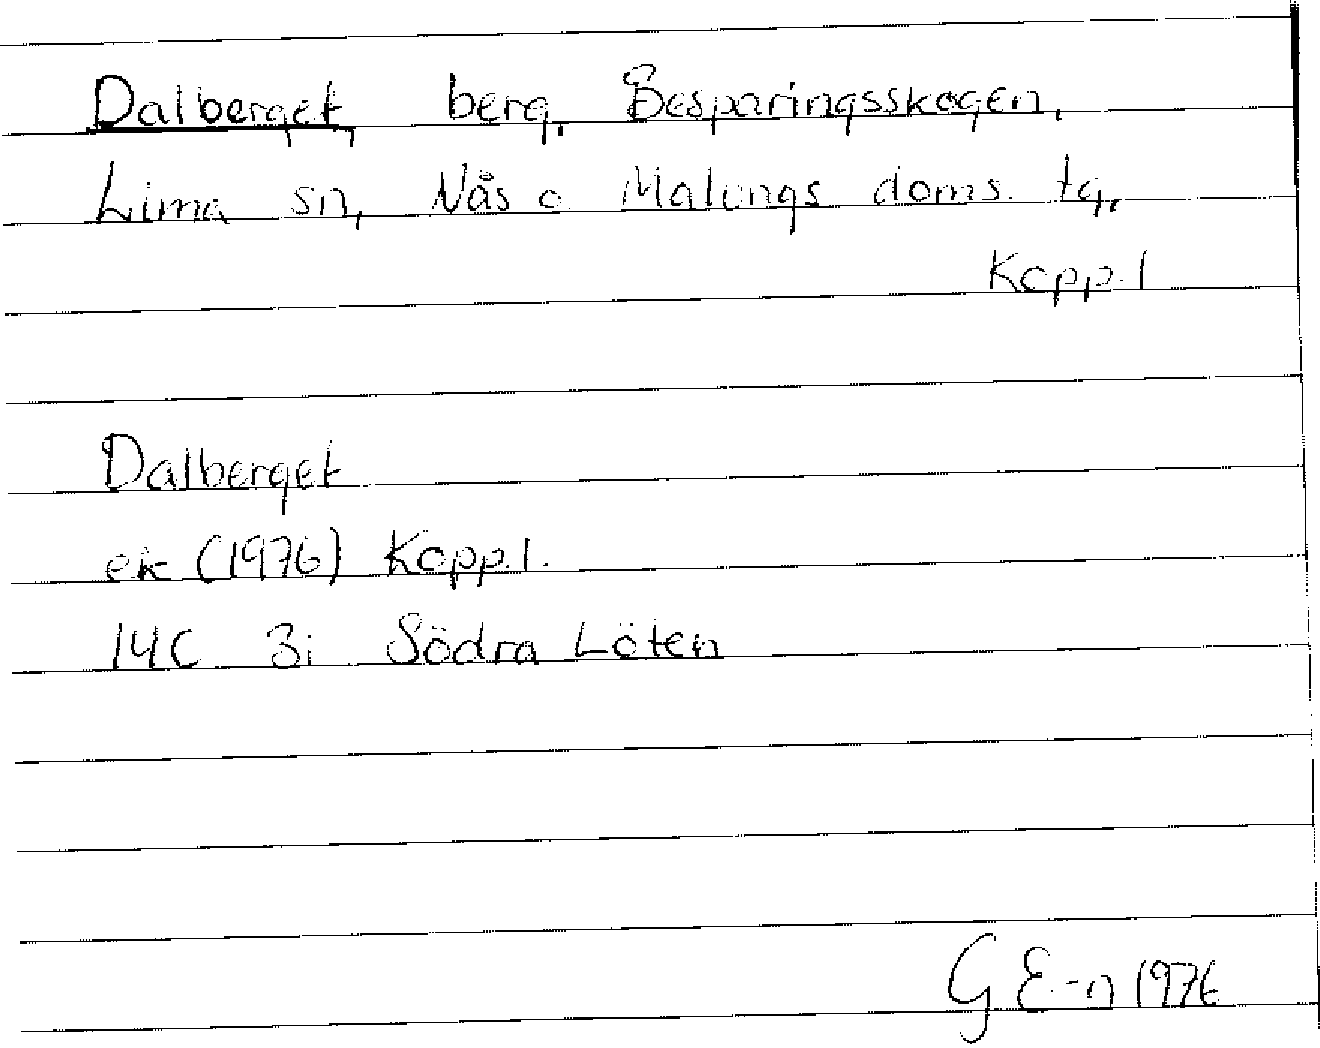 Dalberget, berg, Besparingsskogen,
Lima sn, Nås o Malungs doms. tg,
Kopp. l
Dalberget
ek (1976) Kopp. l.
14C 3i Södra Löten
G E-n 1976